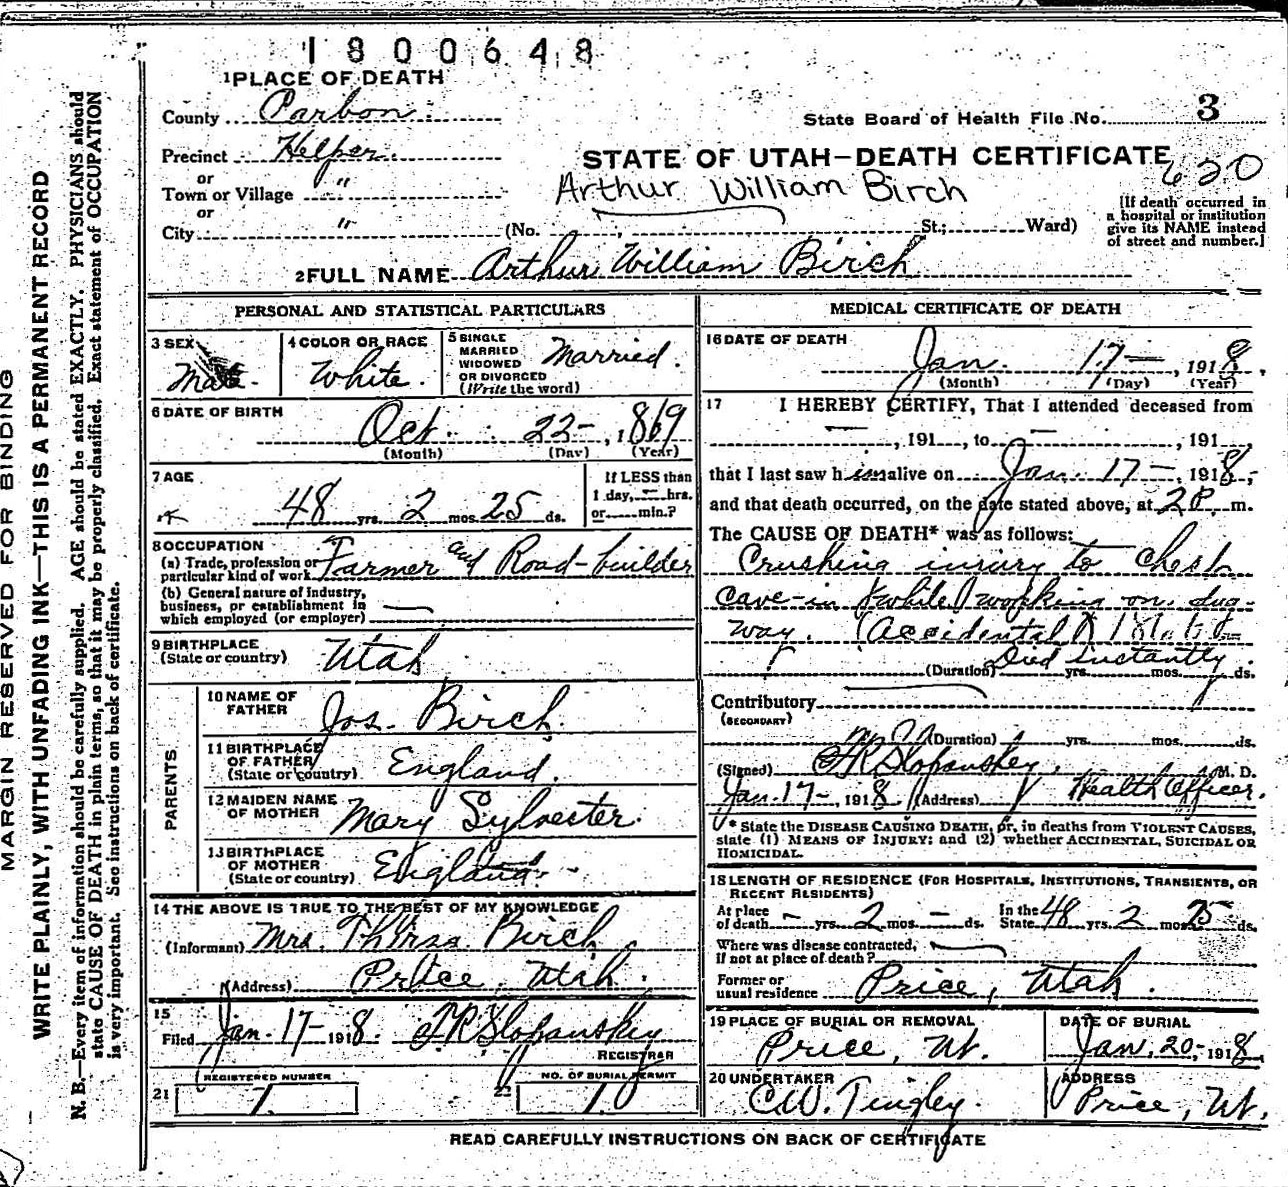 1800648
1 PLACE OF DEATH
County Carbon
State Board of Health File No. 3
Precinct Helper
STATE OF UTAH—DEATH CERTIFICATE
620
or
Town or Village "
Arthur William Birch
[If death occurred in
a hospital or institution
give its NAME instead
of street and number.]
or
City " (No. , St.; Ward)
2 FULL NAME Arthur William Birch
PERSONAL AND STATISTICAL PARTICULARS
3 SEX Male
4 COLOR OR RACE White.
5 SINGLE
MARRIED
WIDOWED
OR DIVORCED
(Write the word)
Married.
6 DATE OF BIRTH
Oct. 22—, 1869
(Month) (Day) (Year)
7 AGE
48 yrs. 2 mos. 25 ds.
If LESS than
1 day, — hrs.
or min.?
8 OCCUPATION
(a) Trade, profession or
particular kind of work Farmer and Road-builder
(b) General nature of industry,
business, or establishment in
which employed (or employer) —
9 BIRTHPLACE
(State or country) Utah
PARENTS
10 NAME OF
FATHER Jos. Birch.
11 BIRTHPLACE
OF FATHER
(State or country) England.
12 MAIDEN NAME
OF MOTHER Mary Sylvester.
13 BIRTHPLACE
OF MOTHER
(State or country) England.
14 THE ABOVE IS TRUE TO THE BEST OF MY KNOWLEDGE
(Informant) Mrs. Birch
(Address) Price, Utah.
15
Filed Jan. 17— 1918.
REGISTRAR
REGISTERED NUMBER
21 7.
NO. OF BURIAL PERMIT
22
MEDICAL CERTIFICATE OF DEATH
16 DATE OF DEATH
Jan. 17—, 1918.
(Month) (Day) (Year)
17 I HEREBY CERTIFY, That I attended deceased from
— , 191 , to — , 191 ,
that I last saw h im alive on Jan. 17—, 1918,
and that death occurred, on the date stated above, at 2 P. m.
The CAUSE OF DEATH* was as follows:
Crushing injury to chest
cave-in while working on dug-
way. (Accidental)
Died instantly.
(Duration) yrs. mos. ds.
Contributory
(SECONDARY)
(Duration) yrs. mos. ds.
(Signed) M. D.
Jan. 17—, 1918 (Address) Health Officer.
* State the DISEASE CAUSING DEATH, or, in deaths from VIOLENT CAUSES,
state (1) MEANS OF INJURY; and (2) whether ACCIDENTAL, SUICIDAL OR
HOMICIDAL.
18 LENGTH OF RESIDENCE (FOR HOSPITALS, INSTITUTIONS, TRANSIENTS, OR
RECENT RESIDENTS)
At place
of death — yrs. 2 mos. — ds.
In the
State 48 yrs. 2 mos. 25 ds.
Where was disease contracted,
If not at place of death? —
Former or
usual residence Price, Utah.
19 PLACE OF BURIAL OR REMOVAL
Price, Ut.
DATE OF BURIAL
Jan. 20- 1918
20 UNDERTAKER
C.W. Tingley.
ADDRESS
Price, Ut.
READ CAREFULLY INSTRUCTIONS ON BACK OF CERTIFICATE
MARGIN RESERVED FOR BINDING
WRITE PLAINLY, WITH UNFADING INK—THIS IS A PERMANENT RECORD
N. B.—Every item of information should be carefully supplied. AGE should be stated EXACTLY. PHYSICIANS should
state CAUSE OF DEATH in plain terms, so that it may be properly classified. Exact statement of OCCUPATION
is very important. See instructions on back of certificate.